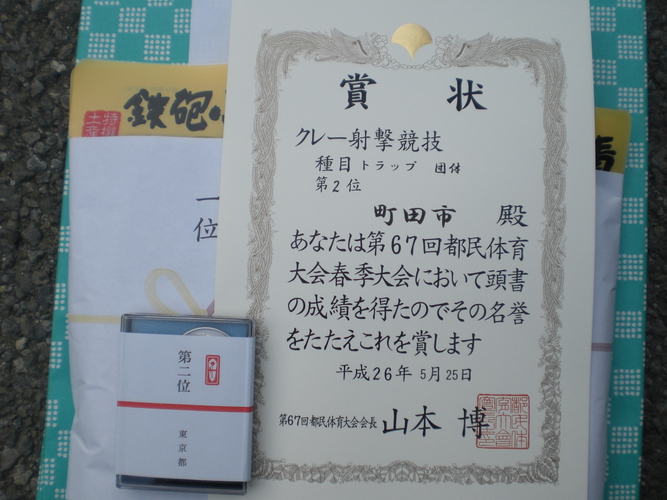 賞状
クレー射撃競技
種目 トラップ 団体
第2位
町田市 殿
あなたは第67回都民体育
大会春季大会において頭書
の成績を得たのでその名誉
をたたえこれを賞します
平成26年 5月25日
第67回都民体育大会会長 山本 博
特撰
土産
鉄砲
一
位
第二位
東京都